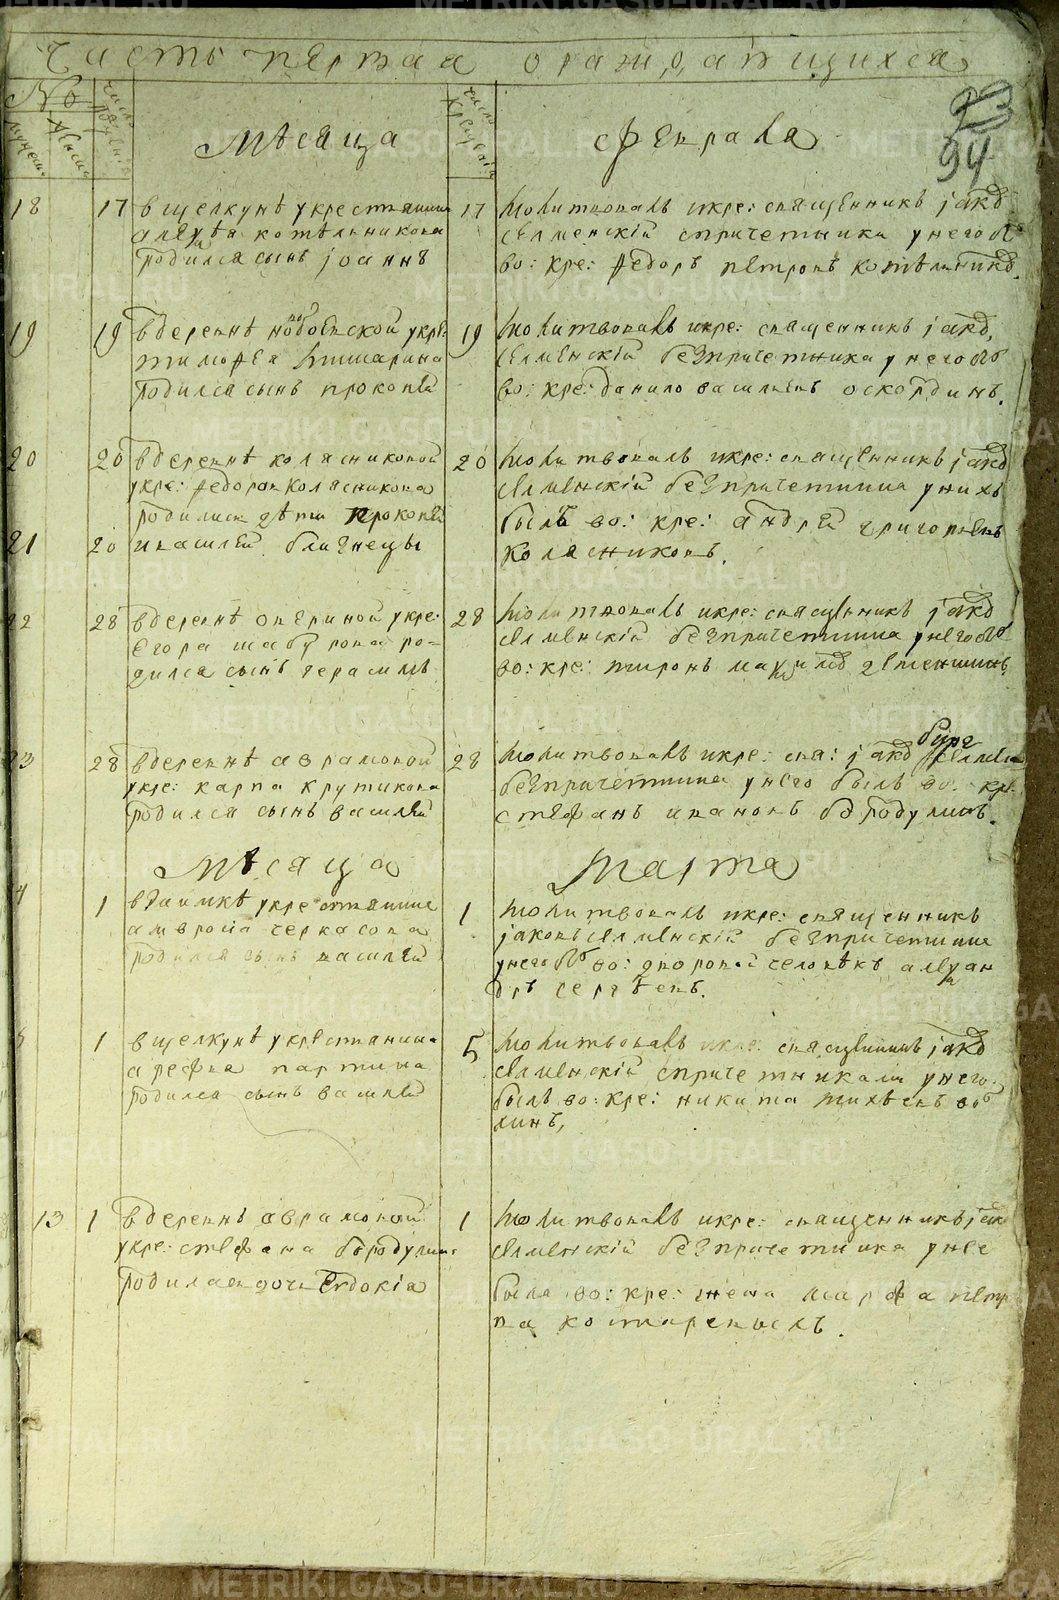 часть первая о раждающихся
№
мужеска
женска
число рождения
месяца
число крещения
февраля
93
94
18
17
в щелкунѣ у крестьянина
алеѯѣя котѣльникова
родился сынъ іоаннъ
17
молитвовалъ и кре: священникъ іаков
селменскій с причетники у него бы
во: кре: федоръ петровъ котѣльников
19
19
в деревнѣ новоипской у кре:
тимофея
родился сынъ прокопей
19
молитвовалъ и кре: священникъ іаков
селменскій без причетника у него бы
во: кре: данило васильевъ оскординъ.
20
20
в деревнѣ колясниковой
у кре: федора колясникова
родились дѣти прокопей
21
20
и василей близнецы
20
молитвовалъ и кре: священникъ іаков
селменскій без причетника у нихъ
былъ во: кре: андрей григорьевъ
колясниковъ.
22
28
в деревнѣ авериной у кре:
егора шабурова ро-
дился сынъ герасимъ
28
молитвовалъ и кре: священникъ іаков
селменскій без причетника у него бы
во: кре: миронъ
23
28
в деревнѣ аврамовой
у кре: карпа крутикова
родился сынъ василей
28
молитвовалъ и кре: свя: іаков селменск
без причетника у него былъ во: кр:
стефанъ ивановъ бородулинъ.
месяца
марта
4
1
в заимкѣ у крестьянина
амвросіа черкасова
родился сынъ василей
1
молитвовалъ и кре: священникъ
іаковъ селменскій без причетника
у него бы во: дворовой человѣкъ алеѯан
дръ сергѣевъ.
5
1
в щелкунѣ у крестьянина
арефья партина
родился сынъ василей
5
молитвовалъ и кре: священникъ іаков
селменскій с причетниками у него
былъ во: кре: никита
линъ,
13
1
в деревнѣ аврамовой
у кре: стефана бородулина
родилася дочь евдокіа
1
молитвовалъ и кре: священникъ іак
селменскій без причетника у нее
была во: кре: жена марфа петр
ва костаревыхъ.
METRIKI.GASO-URAL.RU